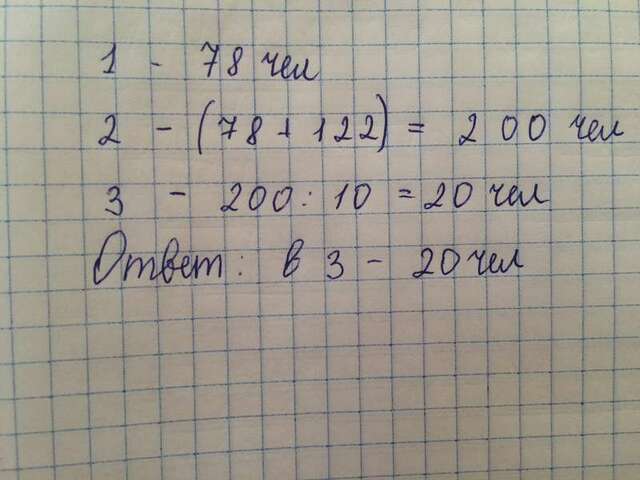 1 - 78 чел
2 - (78 + 122) = 200 чел
3 - 200 : 10 = 20 чел
Ответ: в 3 - 20 чел